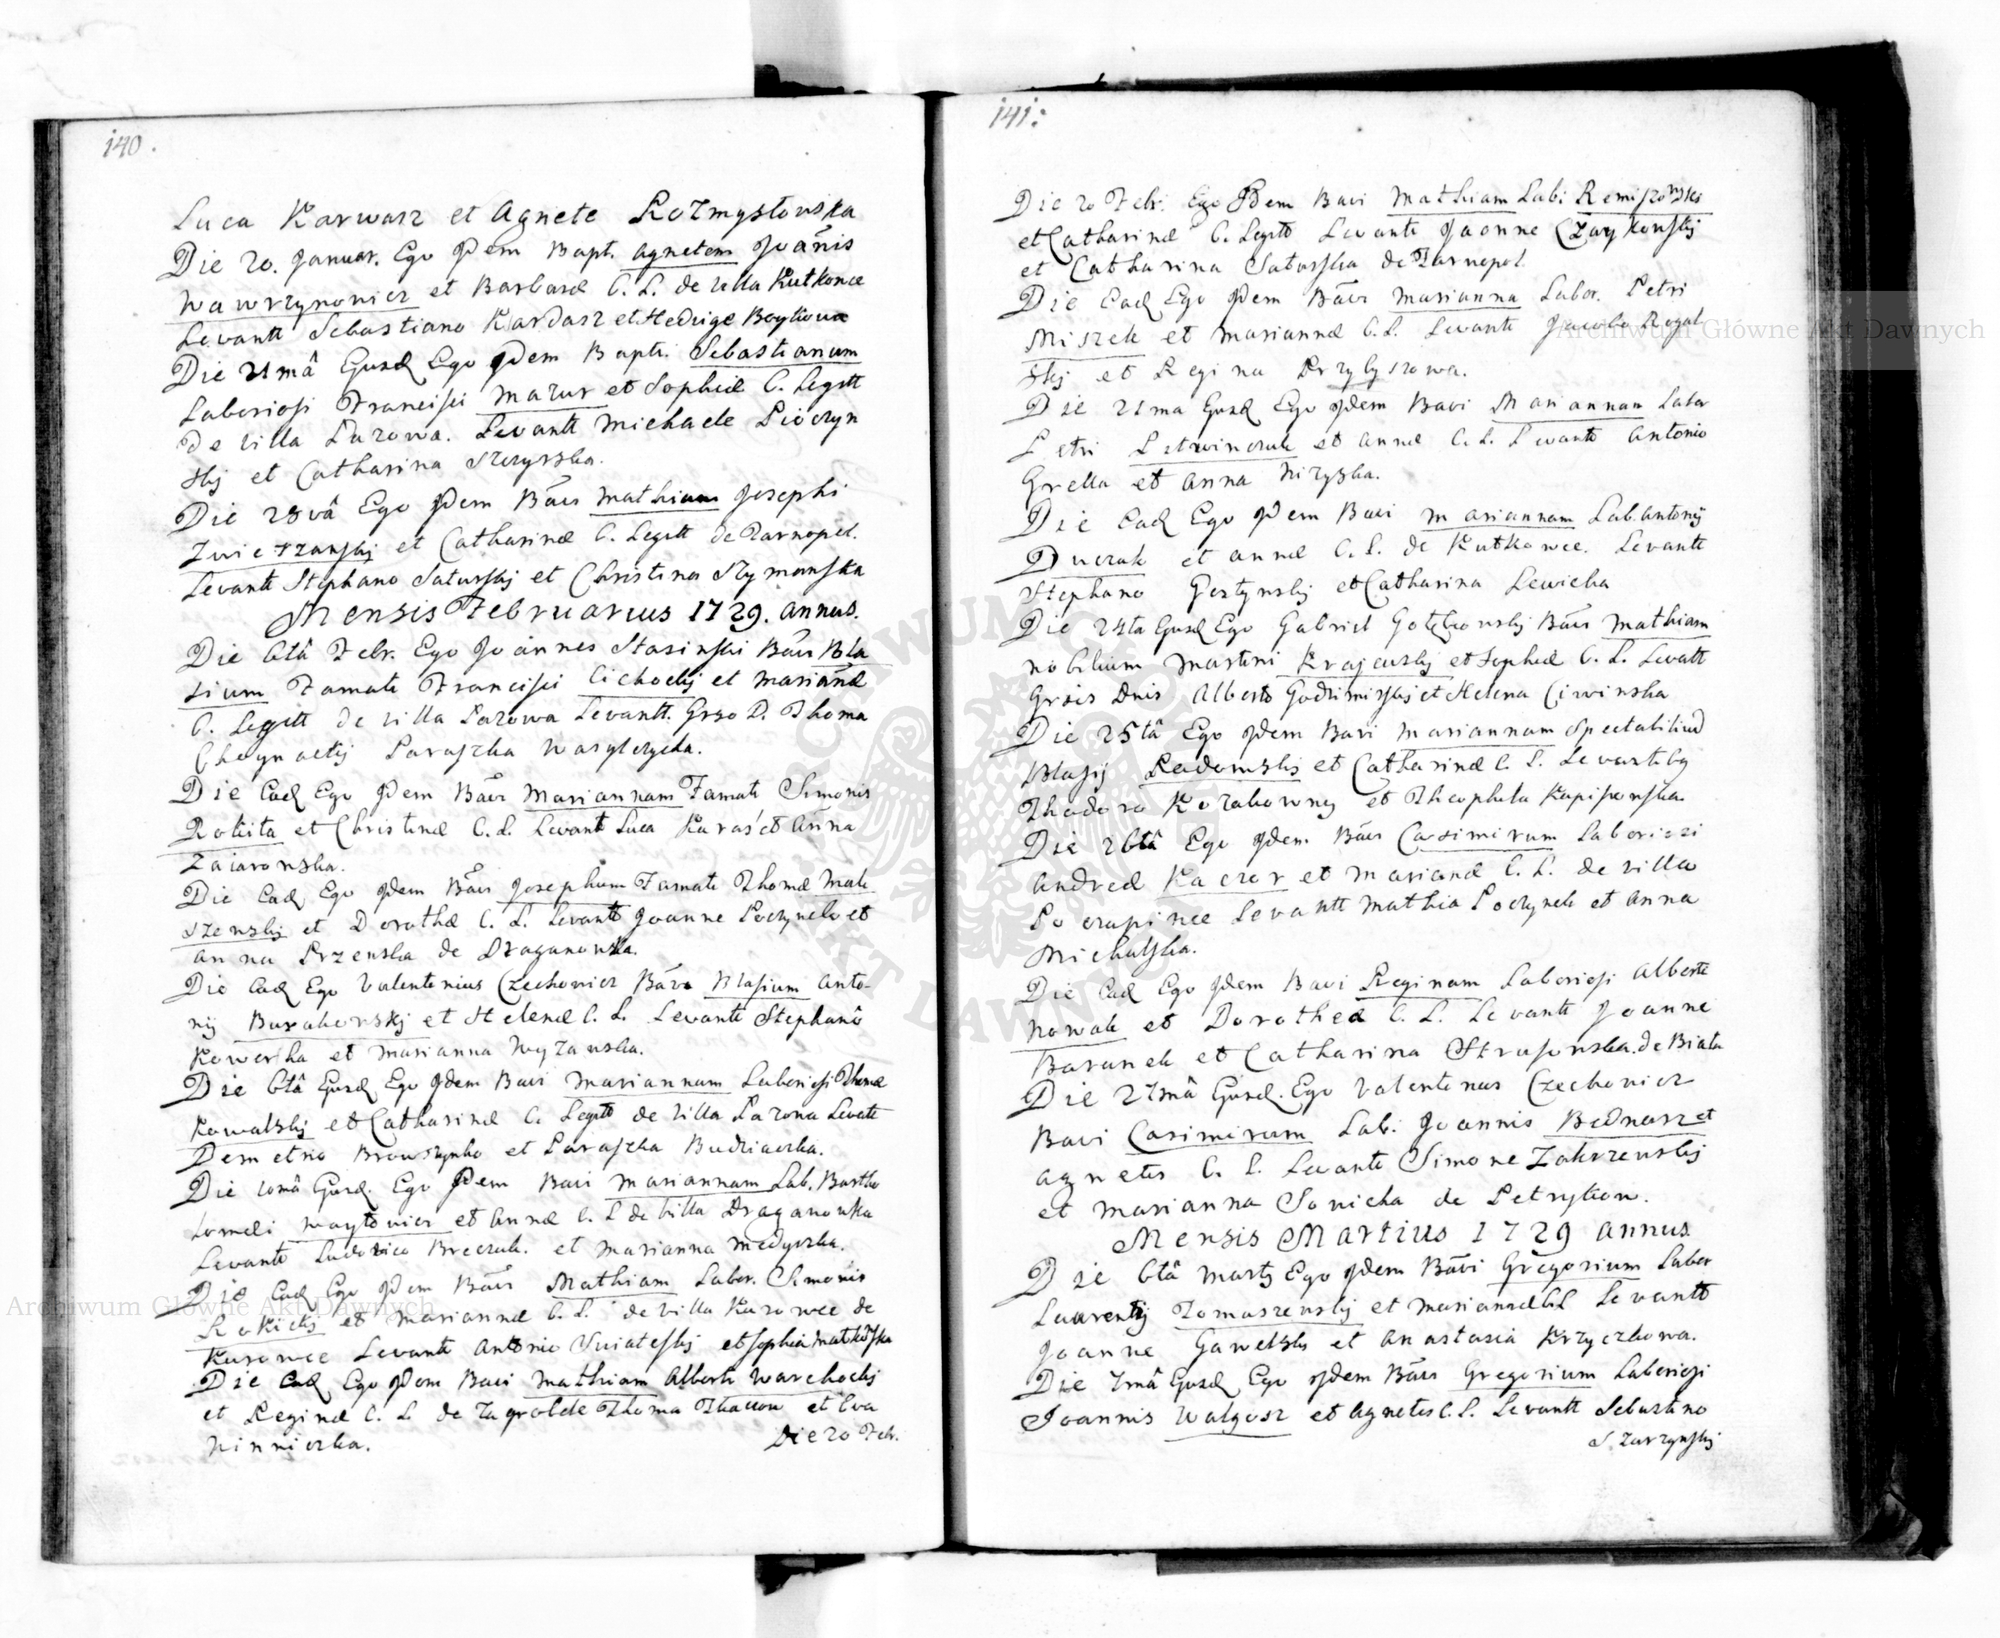 140.
Luca Karwasz et Agnete Rozmysłowska
Die 20. Januar. Ego Idem Bapt. Agnetem Joānis
Wawrzynowicz et Barbaræ C. L. de villa Kutkowce
Levantt Sebastiano Kardasz et Hedvige Boykowa
Die 21mâ Eijusd Ego Idem Bapti. Sebastianum
Laboriosi Francisci Mazur et Sophiæ C. Legitt
de villa Łozowa. Levantt Michaele Pioczyn
skij et Catharina Szczyrska.
Die 28vâ Ego Idem Bāvi Mathiam Josephi
Zwierzanskij et Catharinæ C. Legitt de Tarnopol.
Levantt Stephano Saturskij et Christina Szymanska
Mensis Februarius 1729. annus.
Die 6tâ Febr. Ego Joānnes Stasinski Bāvi Bla
sium Famati Francisci Cichockij et Mariānæ
C. Legitt de villa Łozowa Levantt. Grso D. Thoma
Paraszka Wasylczycha.
Die Ead Ego Idem Bāvi Mariannam Famati Simonis
Rokita et Christinæ C. L. Levantt Luca Karaś et Anna
Zaiaronska.
Die Ead Ego Idem Bāvi Josephum Famati Thomæ Mali
szewskij et Dorothæ C. L. Levantt Joanne Poczynek et
Anna Przenska de Draganowka.
Die Ead Ego Valentinius Czechowicz Bāvi Blasium Anto-
nij Burakowskij et Helenæ C. L. Levantt Stephanô
Kowerka et Marianna Wyzanska.
Die 6tâ Eijusd Ego Idem Bavi Mariannam Laboriosi Thomæ
Kowalskij et Catharinæ C. Legitt de villa Łozowa Levatt
Demetrio Browszynko et Paraszka Budziaczka.
Die 10mâ Eijusd. Ego Idem Bavi Mariannam Lab. Bartho
lomæi Woytowicz et Annæ C. L de villa Draganowka
Levantt Ludovico Breczuk. et Marianna Medyczka.
Die Ead Ego Idem Bāvi Mathiam Labor. Simonis
Rokickij et Mariannæ C. L. de villa Kurowce de
Kurowce Levantt Antonio Swiatelskij et Sophia Matkowska
Die Ead Ego Idem Bavi Mathiam Alberti Warchockij
et Reginæ C. L. de Zagrobele Thoma Tkaczow et Eva
Winniczka.
Die 20 Febr.
141:
Die 20 Febr. Ego Idem Bavi Mathiam Labi. Remiszowski
et Catharinæ C. Legitt Levantt Joanne Czaykowskij
et Catharina Saturska de Tarnopol
Die Ead Ego Idem Bāvi Marianna Labor. Petri
Miszek et Mariannæ C. L. Levantt Jacobo Rogal
skij et Regina Przybyszowa.
Die 21ma Eijusd Ego Idem Bavi Mariannam Labor
Petri Litwinczuk et Annæ C. L. Levantt Antonio
Grella et Anna Nizyska.
Die Ead Ego Idem Bavi Mariannam Lab. Antonij
Duczak et Annæ C. L. de Kutkowce. Levantt
Stephano Gostynskij et Catharina Lewicka
Die 24ta Eijusd Ego Gabriel Gołębowskij Bāvi Mathiam
nobilium Martini Krajewskij et Sophiæ C. L. Levatt
Grsis Dnis Alberto Godzimirskij et Helena Ciwinska
Die 25tâ Ego Idem Bavi Mariannam Spectabilium
Blasij Radomskij et Catharinæ C. L. Levantibg
Thodoro Kozakowny et Theophila Kapiszowska.
Die 26tâ Ego Idem Bāvi Casimirum Laboriosi
Andreæ Kaczor et Mariānæ C. L. de villa
Poczapince Levantt Mathia Poczynek et Anna
Michalska.
Die Ead Ego Idem Bavi Reginam Laboriosi Alberti
Nowak et Dorotheæ C. L. Levantt Joanne
Baranek et Catharina Strusowska. de Biała
Die 27mâ Eijusd. Ego Valentinus Czechowicz
Bavi Casimirum Lab. Joannis Bednarz et
Agnetis C. L. Levantt Simone Zakrzewskij
et Marianna Sowicka de Petrykow.
Mensis Martius 1729 annus.
Die 6tâ Martij Ego Idem Bāvi Gregorium Labor
Laurentij Tomaszewskij et Mariannæ C.L Levantt
Joanne Gawelski et Anastasia Krzyczkowa.
Die 7mâ Eijusd Ego Idem Bāvi Gregorium Laboriosi
Joannis Walgosz et Agnetis C. L. Levantt Sebastino
S. Zarzynskij
Archiwum Główne Akt Dawnych
Archiwum Główne Akt Dawnych
ARCHIWUM GŁÓWNE AKT DAWNYCH